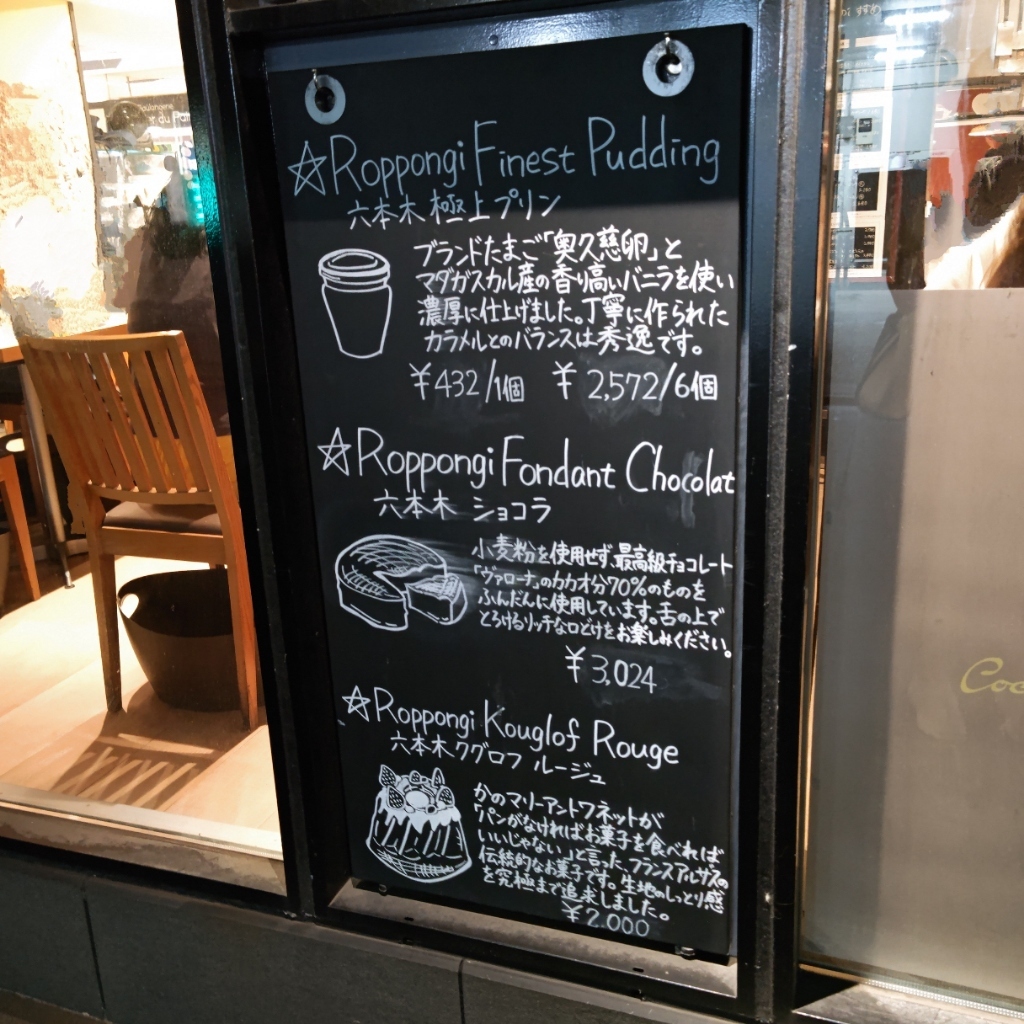 ☆Roppongi Finest Pudding
六本木 極上プリン
ブランドたまご「奥久慈卵」と
マダガスカル産の香り高いバニラを使い
濃厚に仕上げました。丁寧に作られた
カラメルとのバランスは秀逸です。
¥432/1個 ¥2,572/6個
☆Roppongi Fondant Chocolat
六本木 ショコラ
小麦粉を使用せず、最高級チョコレート
「ヴァローナ」のカカオ分70%のものを
ふんだんに使用しています。舌の上で
とろけるリッチな口どけをお楽しみください。
¥3,024
☆Roppongi Kouglof Rouge
六本木クグロフ ルージュ
かのマリーアントワネットが
「パンがなければお菓子を食べれば
いいじゃない」と言ったフランスアルザスの
伝統的なお菓子です。生地のしっとり感
を究極まで追来しました。
¥2.000